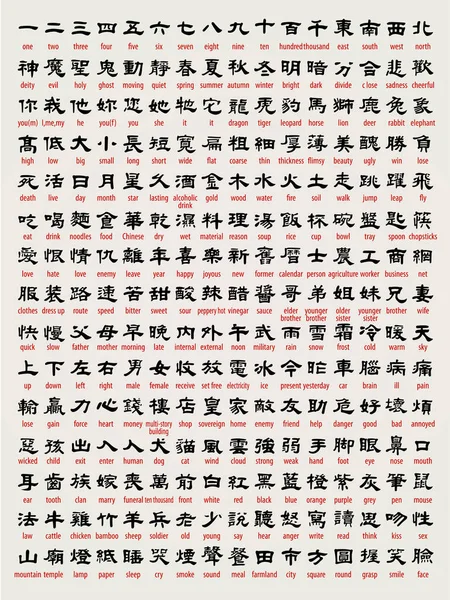 一 二 三 四 五 六 七 八 九 十 百 千 東 南 西 北
one two three four five six seven eight nine ten hundred thousand east south west north
神 魔 聖 鬼 動 靜 春 夏 秋 冬 明 暗 分 合 悲 歡
deity evil holy ghost moving quiet spring summer autumn winter bright dark divide c lose sadness cheerful
你 我 他 妳 您 她 牠 它 龍 虎 豹 馬 獅 鹿 兔 象
you(m) I,me,my he you(f) you she it it dragon tiger leopard horse lion deer rabbit elephant
高 低 大 小 長 短 寬 扁 粗 細 厚 薄 美 醜 勝 負
high low big small long short wide flat coarse thin thickness flimsy beauty ugly win lose
死 活 日 月 星 久 酒 金 木 水 火 土 走 跳 躍 飛
death live day month star lasting alcoholic drink gold wood water fire soil walk jump leap fly
吃 喝 麵 食 華 乾 濕 料 理 湯 飯 杯 碗 盤 匙 筷
eat drink noodles food Chinese dry wet material reason soup rice cup bowl tray spoon chopsticks
愛 恨 情 仇 離 年 喜 樂 新 舊 曆 士 農 工 商 網
love hate love enemy leave year happy joyous new former calendar person agriculture worker business net
服 裝 路 速 苦 甜 酸 辣 醋 醬 哥 弟 姐 妹 兄 妻
clothes dress up route speed bitter sweet sour peppery hot vinegar sauce elder brother younger brother older sister younger sister brother wife
快 慢 父 母 早 晚 內 外 午 武 雨 雪 霜 冷 暖 天
quick slow father mother morning late internal external noon military rain snow frost cold warm sky
上 下 左 右 男 女 收 放 電 冰 今 昨 車 腦 病 痛
up down left right male female receive set free electricity ice present yesterday car brain ill pain
輸 贏 力 心 錢 樓 店 皇 家 敵 友 助 危 好 壞 煩
lose gain force heart money multi-story building shop sovereign home enemy friend help danger good bad annoyed
惡 孩 出 入 人 犬 貓 風 雲 強 弱 手 腳 眼 鼻 口
wicked child exit enter human dog cat wind cloud strong weak hand foot eye nose mouth
耳 齒 族 嫁 喪 萬 前 白 紅 黑 藍 橙 紫 灰 筆 鼠
ear tooth clan marry funeral ten thousand front white red black blue orange purple grey pen mouse
法 牛 雞 竹 羊 兵 老 少 說 聽 怒 寫 讀 思 吻 性
law cattle chicken bamboo sheep soldier old young say hear anger write read think kiss sex
山 廟 燈 紙 睡 哭 煙 聲 餐 田 市 方 圓 握 笑 臉
mountain temple lamp paper sleep cry smoke sound meal farmland city square round grasp smile face